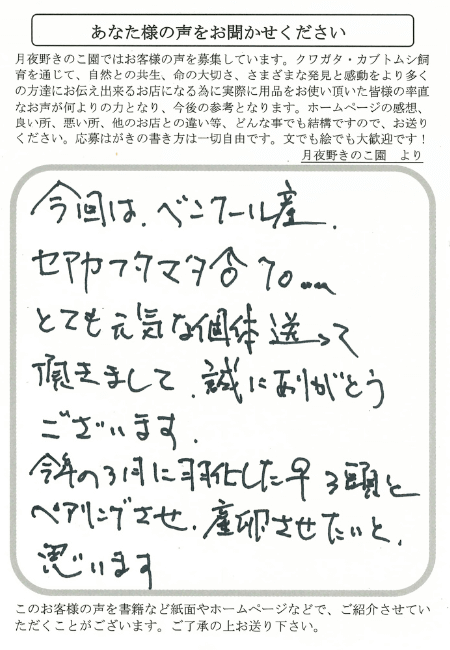 あなた様の声をお聞かせください
月夜野きのこ園ではお客様の声を募集しています。クワガタ・カブトムシ飼
育を通じて、自然との共生、命の大切さ、さまざまな発見と感動をより多く
の方達にお伝え出来るお店になる為に実際に用品をお使い頂いた皆様の率直
なお声が何よりの力となり、今後の参考となります。ホームページの感想、
良い所、悪い所、他のお店との違い等、どんな事でも結構ですので、お送り
ください。応募はがきの書き方は一切自由です。文でも絵でも大歓迎です！
月夜野きのこ園　より
今回は、ベンクール産、
セアカフタマタ♂70mm
とても元気な個体送って
頂きまして、誠にありがとう
ございます。
今年の3月に羽化した♀3頭と
ペアリングさせ、産卵させたいと、
思います
このお客様の声を書籍など紙面やホームページなどで、ご紹介させてい
ただくことがございます。ご了承の上お送り下さい。